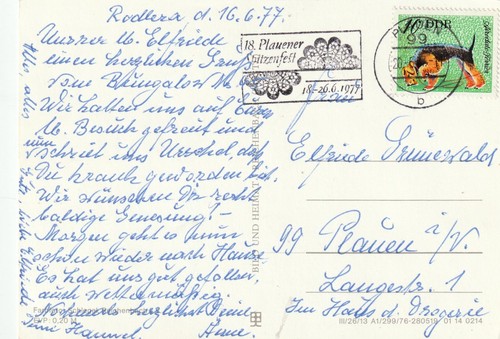 Rodlera, d. 16.6.77.
Unsrer lb. Elfriede
einen herzlichen Gruß
vom Bungalow
Wir hatten uns auf Euren
lb. Besuch gefreut und
nun schreibt uns Urschel, daß
Du krank geworden bist.
Wir wünschen Dir recht
baldige Genesung! –
Morgen geht es nun
schon wieder nach Hause
Es hat uns gut gefallen,
auch wettermäßig.
Anne.
Alles, alles
Gute, liebe Elfriede
18. Plauener
Spitzenfest
18.-26.6.1977
10 DDR
99
b
Frau
Elfriede Grünewald
99 Plauen i/V.
Langestr. 1
Im Haus d. Drogerie
BILD UND HEIMAT REICHENBACH
EVP: 0,20 M
III/26/13 A1/299/76-280519 01 14 0214